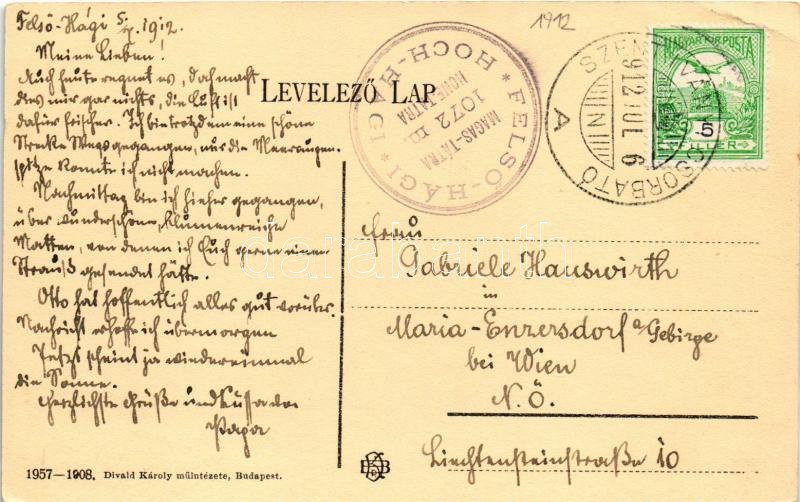 Felső-Hági 5/VII. 1912.
Meine Lieben!
Auch heute regnet es, doch macht
das mir gar nichts, die Luft ist
dafür frischer. Ich bin trotzdem eine schöne
Strecke Wegs gegangen, nur die Meeraugen-
spitze konnte ich nicht machen.
Nachmittag bin ich hieher gegangen,
über wunderschöne, blumenreiche
Matten, von denen ich Euch gerne einen
Strauß gesendet hätte.
Otto hat hoffentlich alles gut vorüber.
Nachricht erhoffe ich übermorgen
Jetzt scheint ja wieder einmal
die Sonne.
Herzlichste Grüße und Küsse von
Papa
1957—1908. Divald Károly műintézete, Budapest.
LEVELEZŐ LAP
1912
* FELSŐ-HÁGI * HOCH-HÁGI
MAGAS-TÁTRA
1072 m
HOHE TÁTRA
SZENTIVÁNY CSORBATÓ
912 JUL 6
N 1
A
MAGYAR KIR. POSTA
5
FILLÉR
Frau
Gabriele Hauswirth
in
Maria-Enzersdorf a/Gebirge
bei Wien
N.Ö.
Liechtensteinstraße 10
darabanth